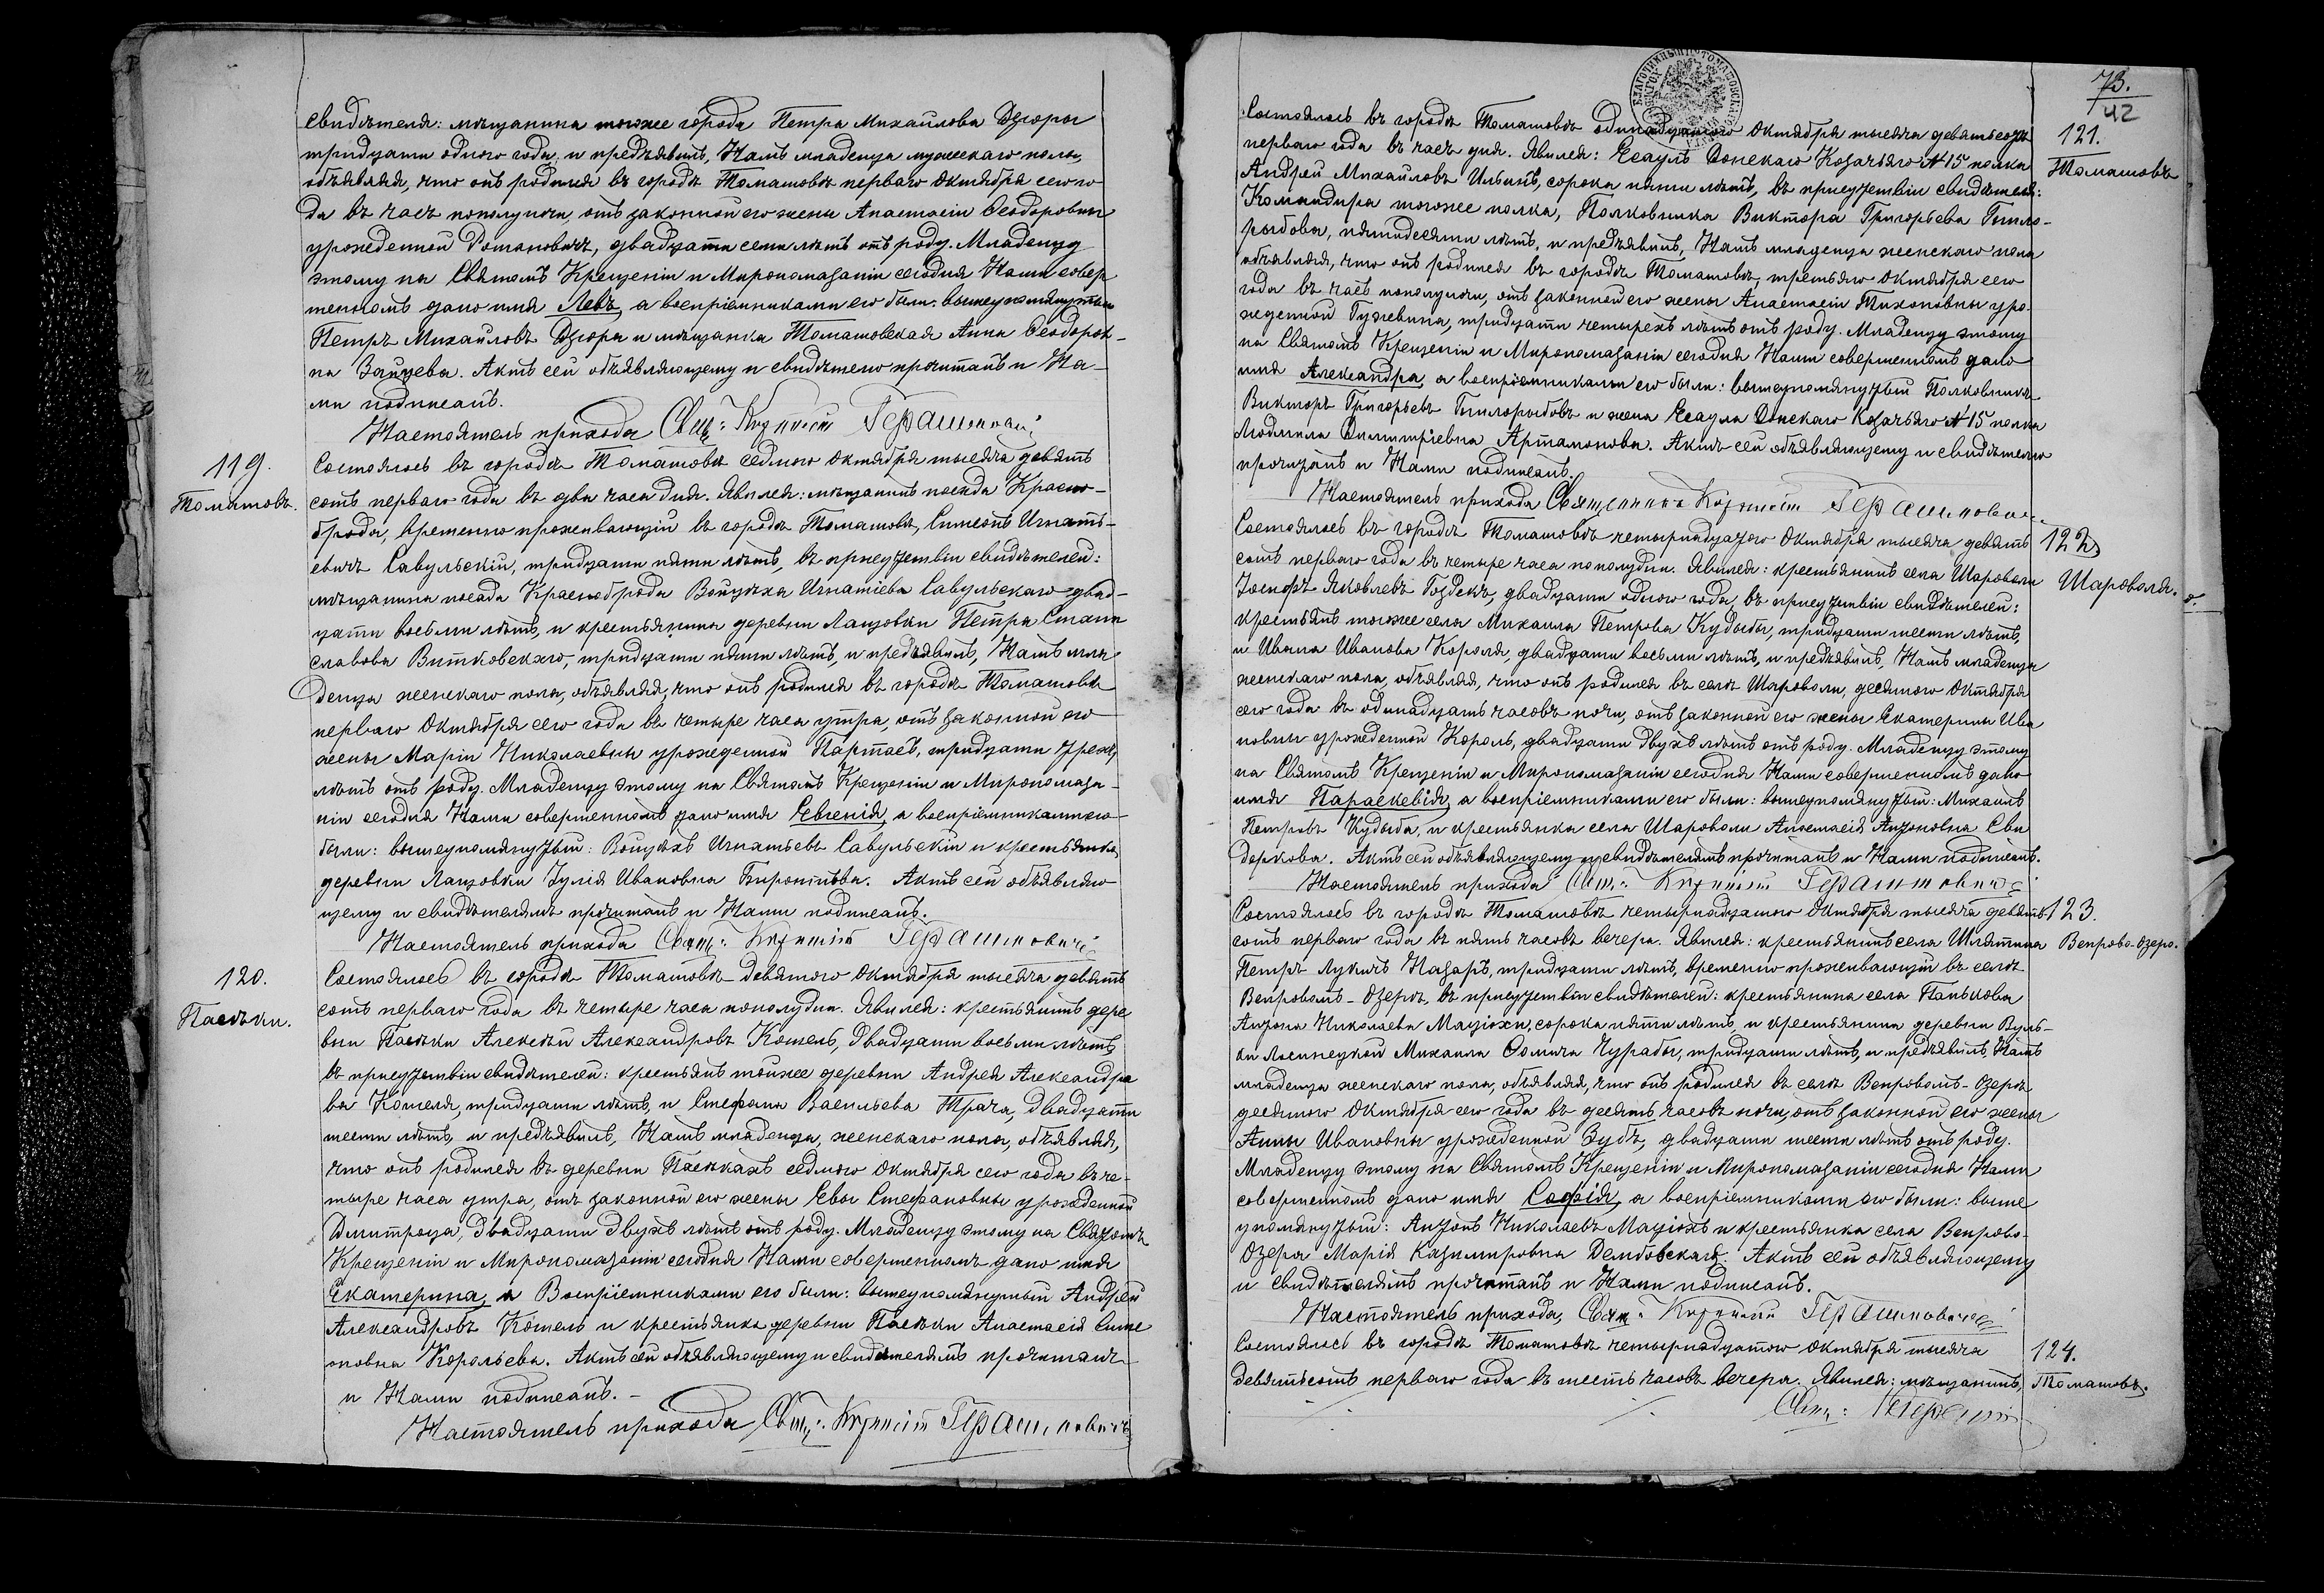 свидѣтеля: мѣщанина тогоже города Петра Михайлова Дзюры
тридцати одного года, и предъявилъ, Намъ младенца мужескаго пола,
объявляя, что онъ родился въ городѣ Томашовѣ перваго Октября сего го-
да въ часъ пополуночи, отъ законной его жены Анастасіи Ѳеодоровны
урожденной Романовичъ, двадцати семи лѣтъ отъ роду. Младенцу
этому на Святомъ Крещеніи и Миропомазаніи сегодня Нами совер
шенномъ дано имя Левъ, а воспріемниками его были: вышеупомянутый
Петръ Михайловъ Дзюра и мѣщанка Томашовская Анна Ѳеодоров-
на Зайцева. Актъ сей объявляющему и свидѣтелю прочитанъ и На-
ми подписанъ.
Настоятель прихода Свящ: Корнилій Герашинович
119.
Томашовъ.
Состоялось въ городѣ Томашовѣ седьмого Октября тысяча девять
сотъ перваго года въ два часа дня. Явился: мѣщанинъ посада Красно-
брода, временно проживающій въ городѣ Томашовѣ, Симеонъ Игнать-
евичъ Савульскій, тридцати пяти лѣтъ, въ присутствіи свидѣтелей:
мѣщанина посада Краснобродa Войцѣха Игнатіева Савульскаго двад-
цати восьми лѣтъ, и крестьянина деревни Лащовки Петра Стани
славова Витковскаго, тридцати пяти лѣтъ, и предъявилъ, Намъ мла
денца женскаго пола, объявляя, что онъ родился въ городѣ Томашовѣ
перваго Октября сего года въ четыре часа утра, отъ законной его
жены Маріи Николаевны урожденной Партасъ, тридцати трехъ
лѣтъ отъ роду. Младенцу этому на Святомъ Крещеніи и Миропомаза-
ніи сегодня Нами совершенномъ дано имя Евгенія, а воспріемниками его
были: вышеупомянутый: Войцѣхъ Игнатьевъ Савульскій и крестьянка
деревни Лащовки Юлія Ивановна. Актъ сей объявляю-
щему и свидѣтелямъ прочитанъ и Нами подписанъ.
Настоятель прихода Свящ: Корнилій Герашиновичъ
120.
Пасѣки.
Состоялось въ городѣ Томашовѣ девятого Октября тысяча девять
сотъ перваго года въ четыре часа пополудни. Явился: крестьянинъ дере
вни Пасѣки Алексѣй Александровъ Кошель, двадцати восьми лѣтъ,
въ присутствіи свидѣтелей: крестьянъ тойже деревни Андрея Александро
ва Кошеля, тридцати лѣтъ, и Стефана Васильева Трача, двадцати
шести лѣтъ, и предъявилъ, Намъ младенца, женскаго пола, объявляя,
что онъ родился въ деревни Пасѣкахъ седьмого Октября сего года въ че-
тыре часа утра, отъ законной его жены Евы Стефановны урожденной
Дмитроца, двадцати двухъ лѣтъ отъ роду. Младенцу этому на Святомъ
Крещеніи и Миропомазаніи сегодня Нами совершенномъ дано имя
Екатерина, а Воспріемниками его были: вышеупомянутый Андрей
Александровъ Кошель и крестьянка деревни Пасѣки Анастасія Симе
оновна Корольева. Актъ сей объявляющему и свидѣтелямъ прочитанъ
и Нами подписанъ.-
Настоятель прихода Свящ: Корнилій Герашиновичъ
73.
42
121.
Томашовъ
Состоялось въ городѣ Томашовѣ одинадцатого Октября тысяча девятьсотъ
перваго года въ часъ дня. Явился: Есаулъ Донскаго Козачьяго №15 полка
Андрей Михайловъ Ильинъ, сорока пяти лѣтъ, въ присутствіи свидѣтеля:
Командира тогоже полка, Полковника Виктора Григорьева Гнило-
рыбова, пятидесяти лѣтъ, и предъявилъ, Намъ младенца женскаго пола
объявляя, что онъ родился въ городѣ Томашовѣ, третьяго Октября сего
года въ часъ пополуночи, отъ законной его жены Анастасіи Тихоновны уро-
жденной Гужевина, тридцати четырехъ лѣтъ отъ роду. Младенцу этому
на Святомъ Крещеніи и Миропомазаніи сегодня Нами совершенномъ дано
имя Александра, а воспріемниками его были: вышеупомянутый Полковникъ
Викторъ Григорьевъ Гнилорыбовъ и жена Есаула Донскаго Козачьяго №15 полка
Людмила Димитріевна Артамонова. Актъ сей объявляющему и свидѣтелю
прочитанъ и Нами подписанъ.
Настоятель прихода Священникъ Корнилій Герашинович
122
Шароволя.
Состоялось въ городѣ Томашовѣ четырнадцатого Октября тысяча девять
сотъ перваго года въ четыре часа пополудни. Явился: крестьянинъ села Шароволи
Іосифъ Яковлевъ Гоздекъ, двадцати одного года, въ присутствіи свидѣтелей:
крестьянъ тогоже села Михаила Петрова Кудыбы, тридцати шести лѣтъ,
и Ивана Иванова Короля, двадцати восьми лѣтъ, и предъявилъ, Намъ младенца
женскаго пола, объявляя, что онъ родился въ селѣ Шароволи, десятого Октября
сего года въ одинадцать часовъ ночи, отъ законной его жены Екатерины Ива
новны урожденной Король, двадцати двухъ лѣтъ отъ роду. Младенцу этому
на Святомъ Крещеніи и Миропомазаніи сегодня Нами совершенномъ дано
имя Параскевія, а воспріемниками его были: вышеупомянутый: Михаилъ
Петровъ Кудыба, и крестьянка села Шароволи Анастасія Антоновна Сви
доркова. Актъ сей объявляющему и свидѣтелямъ прочитанъ и Нами подписанъ.
Настоятель прихода Свящ: Корнилій Герашиновичъ
123.
Вепрово-Озеро.
Состоялось въ городѣ Томашовѣ четырнадцатого Октября тысяча девять
сотъ перваго года въ пять часовъ вечера. Явился: крестьянинъ села Шлятина
Петръ Лукичъ Назаръ, тридцати лѣтъ, временно проживающій въ селѣ
Вепровомъ-Озерѣ, въ присутствіи свидѣтелей: крестьянина села Панькова
Антона Николаева Мацюхи, сорока пяти лѣтъ, и крестьянина деревни Вуль-
ки Лосинецкой Михаила Ѳомича Чурабы, тридцати лѣтъ, и предъявилъ, Намъ
младенца женскаго пола, объявляя, что онъ родился въ селѣ Вепровомъ-Озерѣ
десятого Октября сего года въ десять часовъ ночи, отъ законной его жены
Анны Ивановны урожденной Зубъ, двадцати шести лѣтъ отъ роду.
Младенцу этому на Святомъ Крещеніи и Миропомазаніи сегодня Нами
совершенномъ дано имя Софія, а воспріемниками его были: выше
упомянутый: Антонъ Николаевъ Мацюхъ и крестьянка села Вепрово-
Озера Марія Казимировна Дембовская. Актъ сей объявляющему
и свидѣтелямъ прочитанъ и Нами подписанъ.
Настоятель прихода, Свящ: Корнилій Герашиновичъ
124.
Томашовъ.
Состоялось въ городѣ Томашовѣ четырнадцатого Октября тысяча
девятьсотъ перваго года въ шесть часовъ вечера. Явился: мѣщанинъ,
Свящ: